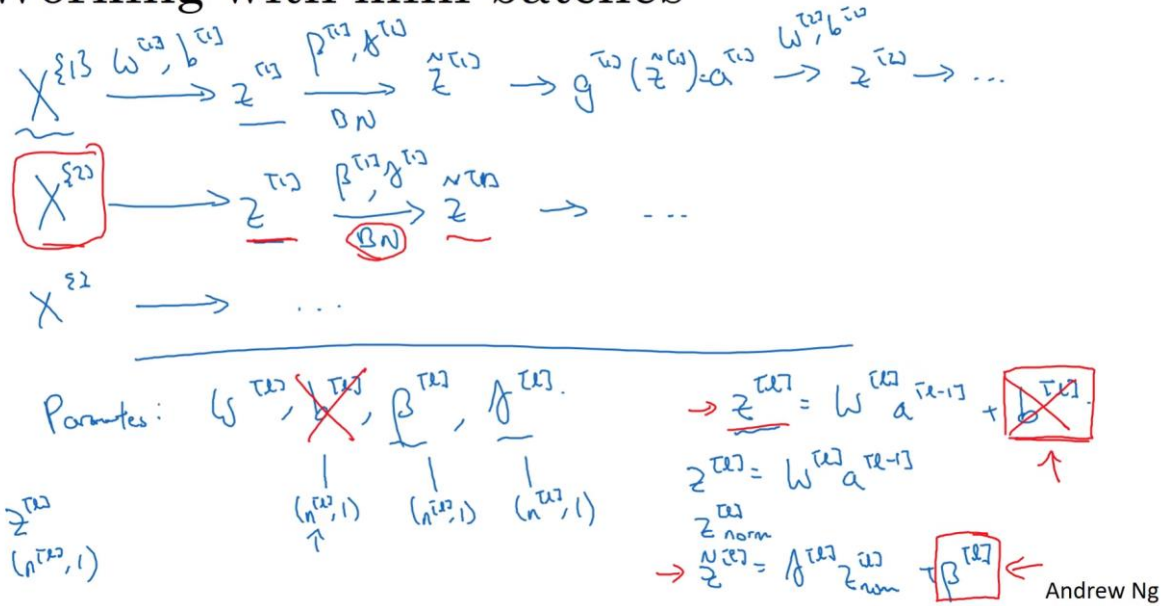 Working with mini-batches
X^{1} W^[1], b^[1] → z^[1] β^[1], γ^[1] → BN z̃^[1] → g^[1](z̃^[1]) = a^[1] W^[2], b^[2] → z^[2] → ...
X^{2} → z^[1] β^[1], γ^[1] → BN z̃^[1] → ...
X^{} → ...
Parameters: W^[l], b^[l], β^[l], γ^[l].
(n^[l], 1) (n^[l], 1) (n^[l], 1)
↑
z^[l]
(n^[l], 1)
→ z^[l] = W^[l] a^[l-1] + b^[l].
↑
z^[l] = W^[l] a^[l-1]
z^[l]_norm
→ z̃^[l] = γ^[l] z^[l]_norm + β^[l] ←
Andrew Ng